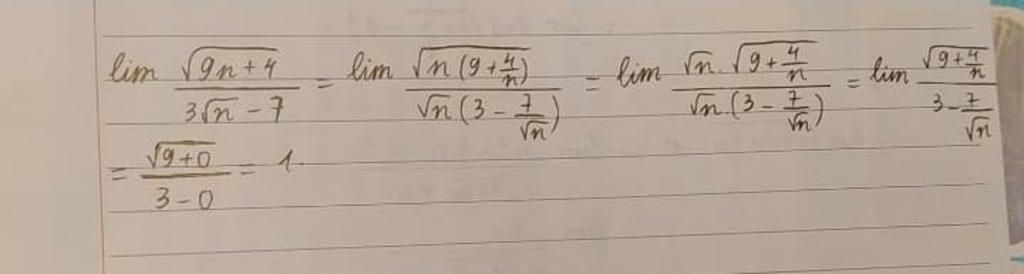 lim √(9n+4)/(3√n − 7) = lim √(n(9+4/n))/(√n(3 − 7/√n)) = lim (√n.√(9+4/n))/(√n.(3 − 7/√n)) = lim √(9+4/n)/(3 − 7/√n)
= √(9+0)/(3 − 0) = 1.